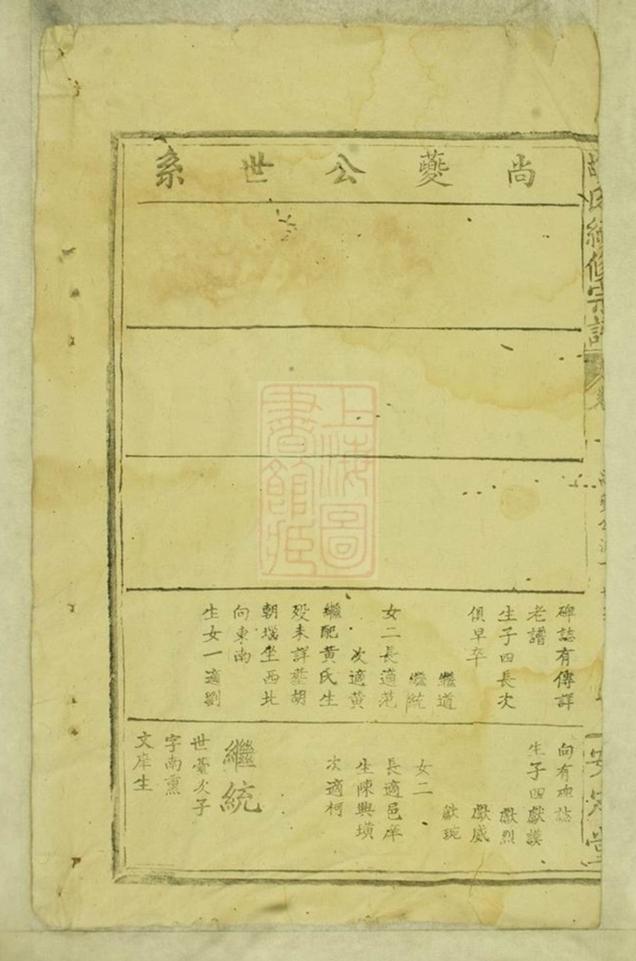 尚夔公世系
碑誌有傳詳
老譜
生子四長次
俱早卒
繼道
繼統
女二長適范
次適黃
繼配黃氏生
歿未詳葬胡
朝堖坐西北
向東南
生女一適劉
向有碑誌
生子四獻謨
獻烈
獻威
獻琬
女二
長適邑庠
生陳興墳
次適柯
繼統
世臺次子
字南熏
文庠生
氏續修宗譜
上海圖
書館藏